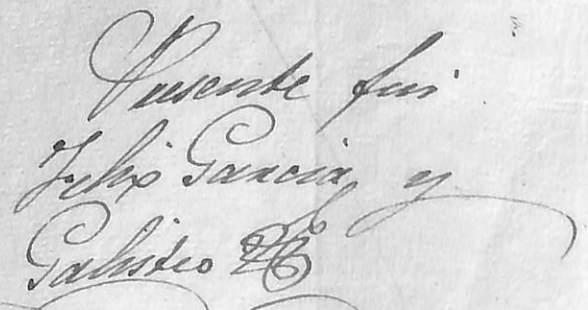 Presente fui
Felix Garcia y
Galisteo